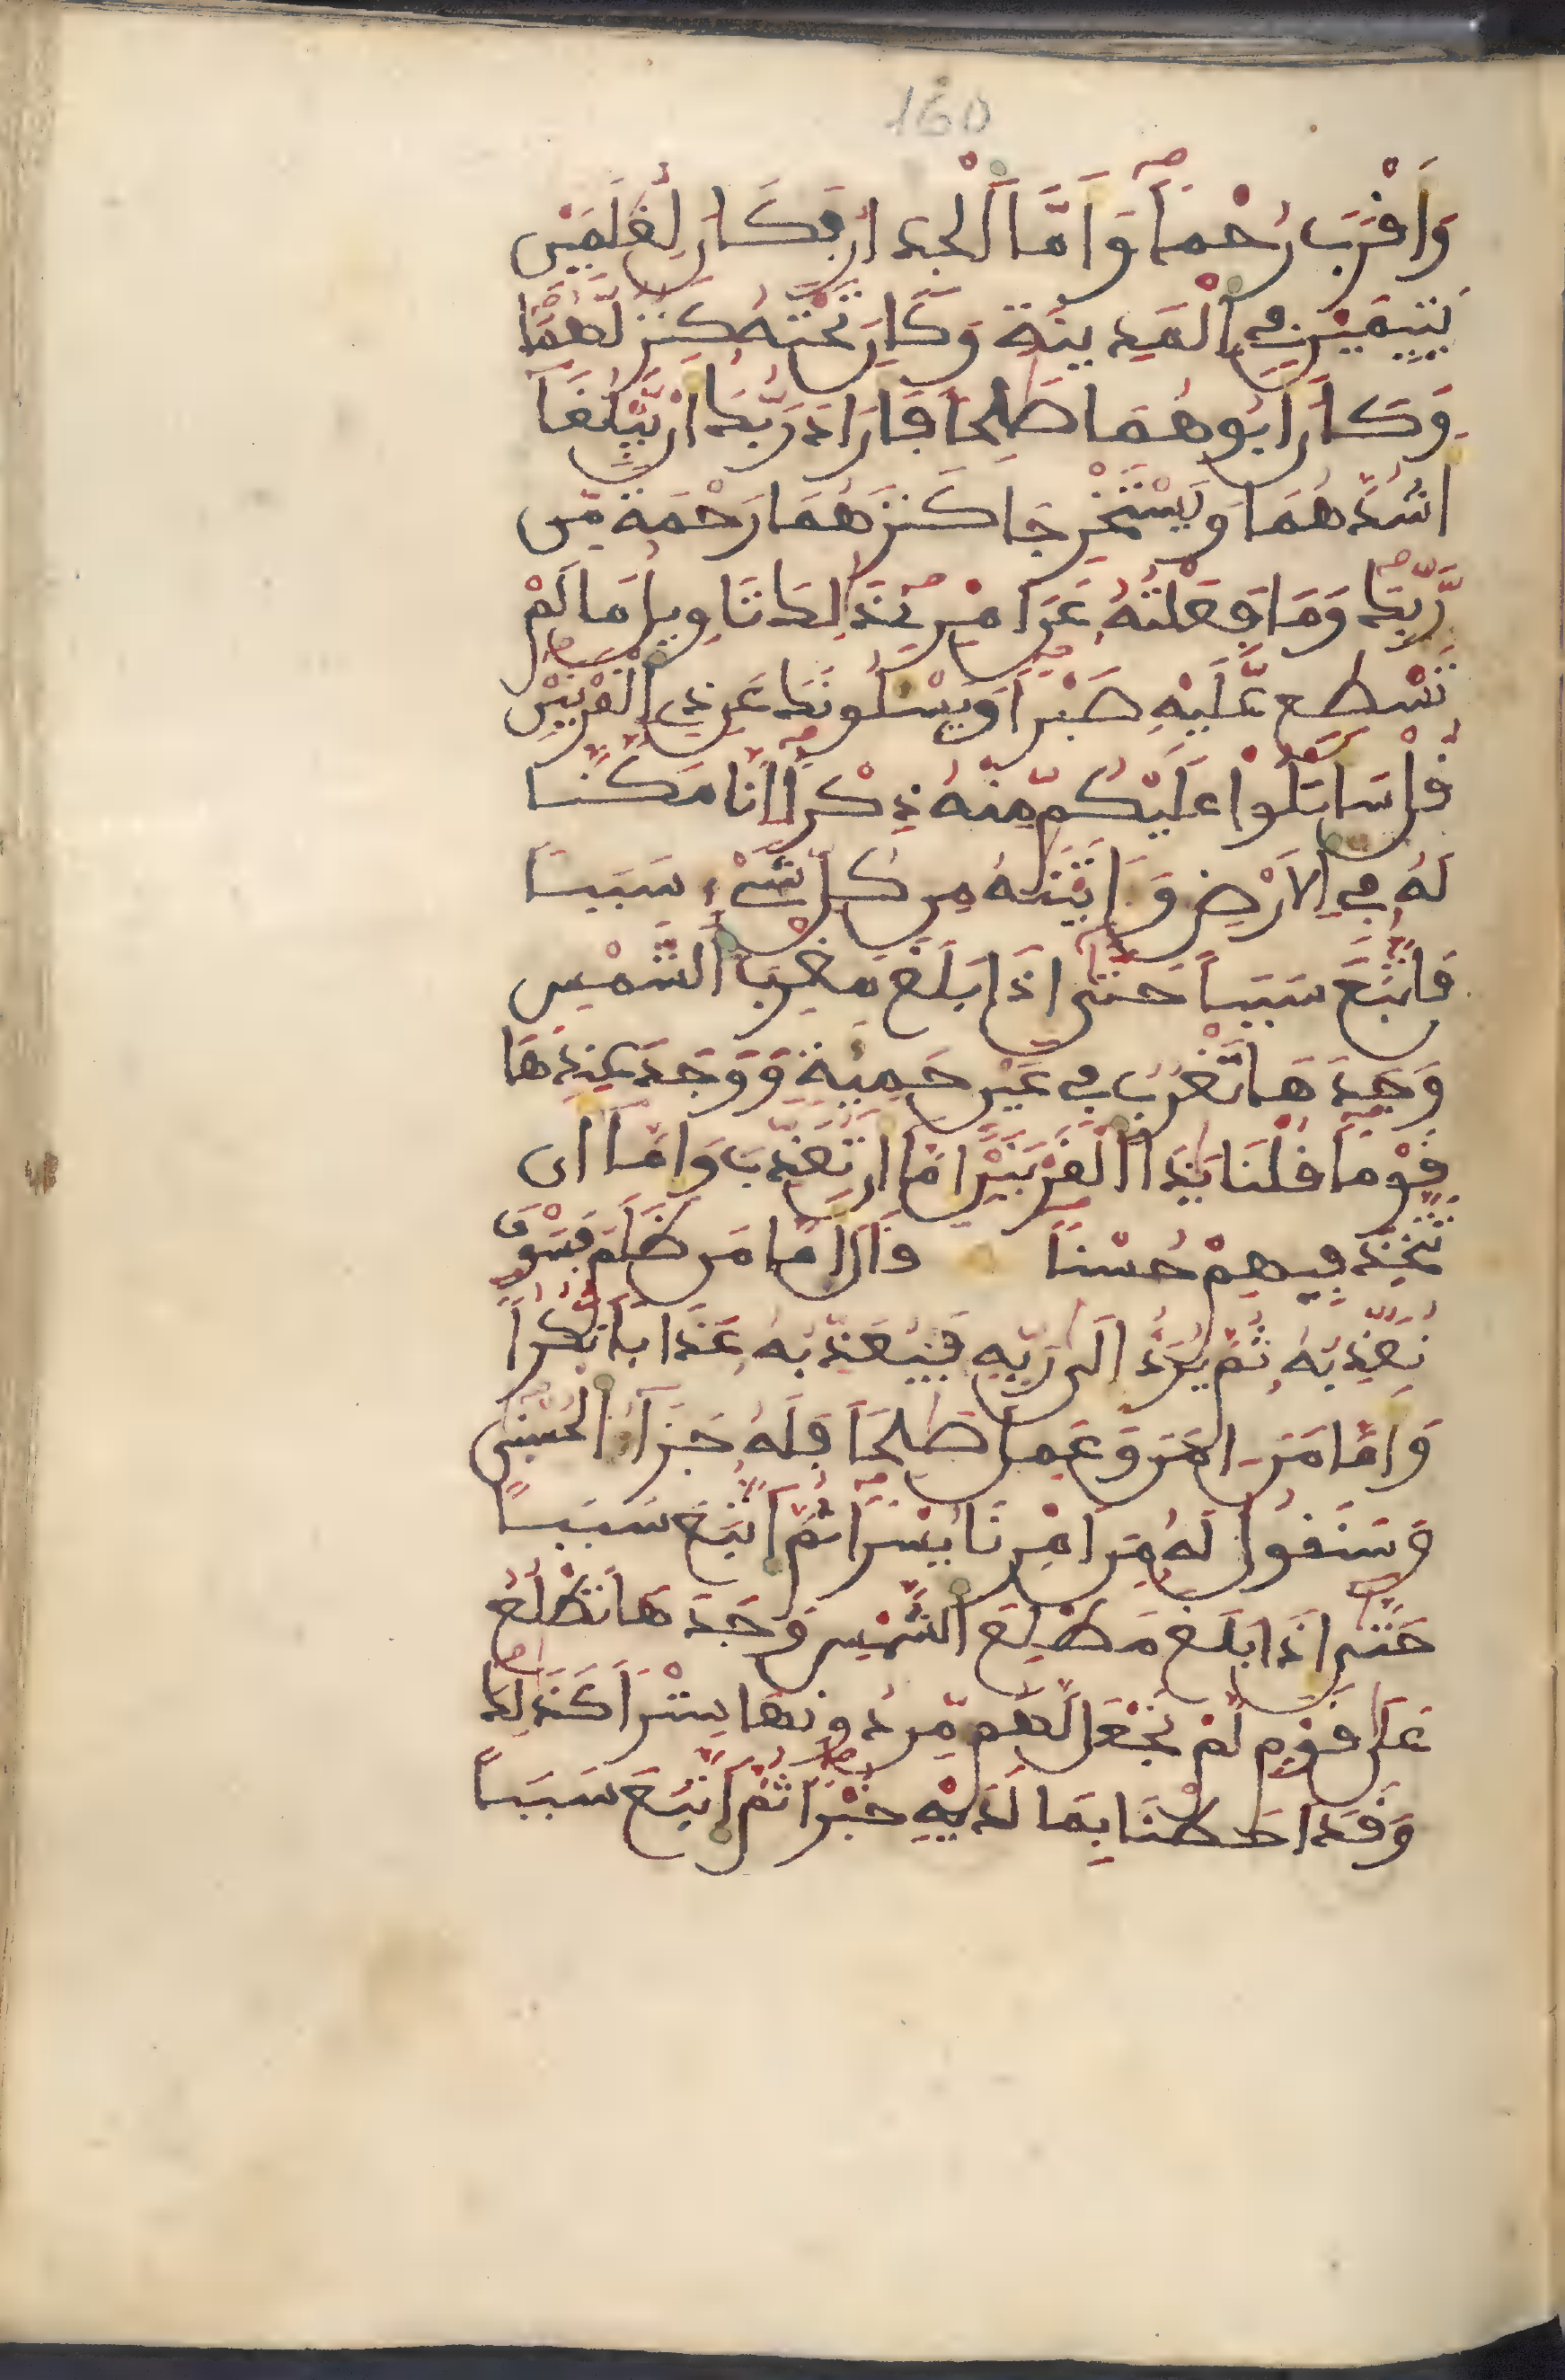 160
وَأَقْرَبَ رُحْماً وَأَمَّا اَلْجِدَارُ فَكَانَ لِغُلَمَيْنِ
يَتِيمَيْنِ فِي اِلْمَدِينَةِ وَكَانَ تَحْتَهُ كَنزٌ لَّهُمَا
وَكَانَ أَبُوهُمَا صَلِحاً فَأَرَادَ رَبُّكَ أَنْ يَّبْلُغَا
أَشُدَّهُمَا وَيَسْتَخْرِجَا كَنزَهُمَا رَحْمَةً مِّن
رَّبِّكَ وَمَا فَعَلْتُهُ عَنَ اَمْرِي ذَلِكَ تَاوِيلُ مَا لَمْ
تَسْطِع عَّلَيْهِ صَبْراً وَيَسْـَٔلُونَكَ عَن ذِي اِلْقَرْنَيْنِ
قُلْ سَأَتْلُوا عَلَيْكُم مِّنْهُ ذِكْراً اِنَّا مَكَّنَّا
لَهُ فِي اِلَارْضِ وَءَاتَيْنَهُ مِن كُلِّ شَيْءٍ سَبَباً
فَاتَّبَعَ سَبَباً حَتَّى إِذَا بَلَغَ مَغْرِبَ اَلشَّمْسِ
وَجَدَهَا تَغْرُبُ فِي عَيْنٍ حَمِئَةٍ وَوَجَدَ عِندَهَا
قَوْماً قُلْنَا يَذَا اَلْقَرْنَيْنِ إِمَّا أَن تُعَذِّبَ وَإِمَّا أَن
تَتَّخِذَ فِيهِمْ حُسْناً قَالَ أَمَّا مَن ظَلَمَ فَسَوْفَ
نُعَذِّبُهُ ثُمَّ يُرَدُّ إِلَى رَبِّهِ فَيُعَذِّبُهُ عَذَاباً نُّكُراً
وَأَمَّا مَنَ اَمَنَ وَعَمِلَ صَلِحاً فَلَهُ جَزَاءُ اُلْحُسْنَى
وَسَنَقُولُ لَهُ مِنَ اَمْرِنَا يُسْراً ثُمَّ اَتَّبَعَ سَبَباً
حَتَّى إِذَا بَلَغَ مَطْلِعَ اَلشَّمْسِ وَجَدَهَا تَطْلُعُ
عَلَى قَوْمٍ لَّمْ نَجْعَل لَّهُم مِّن دُونِهَا سِتْراً كَذَلِكَ
وَقَدَ اَحَطْنَا بِمَا لَدَيْهِ خُبْراً ثُمَّ اَتَّبَعَ سَبَباً